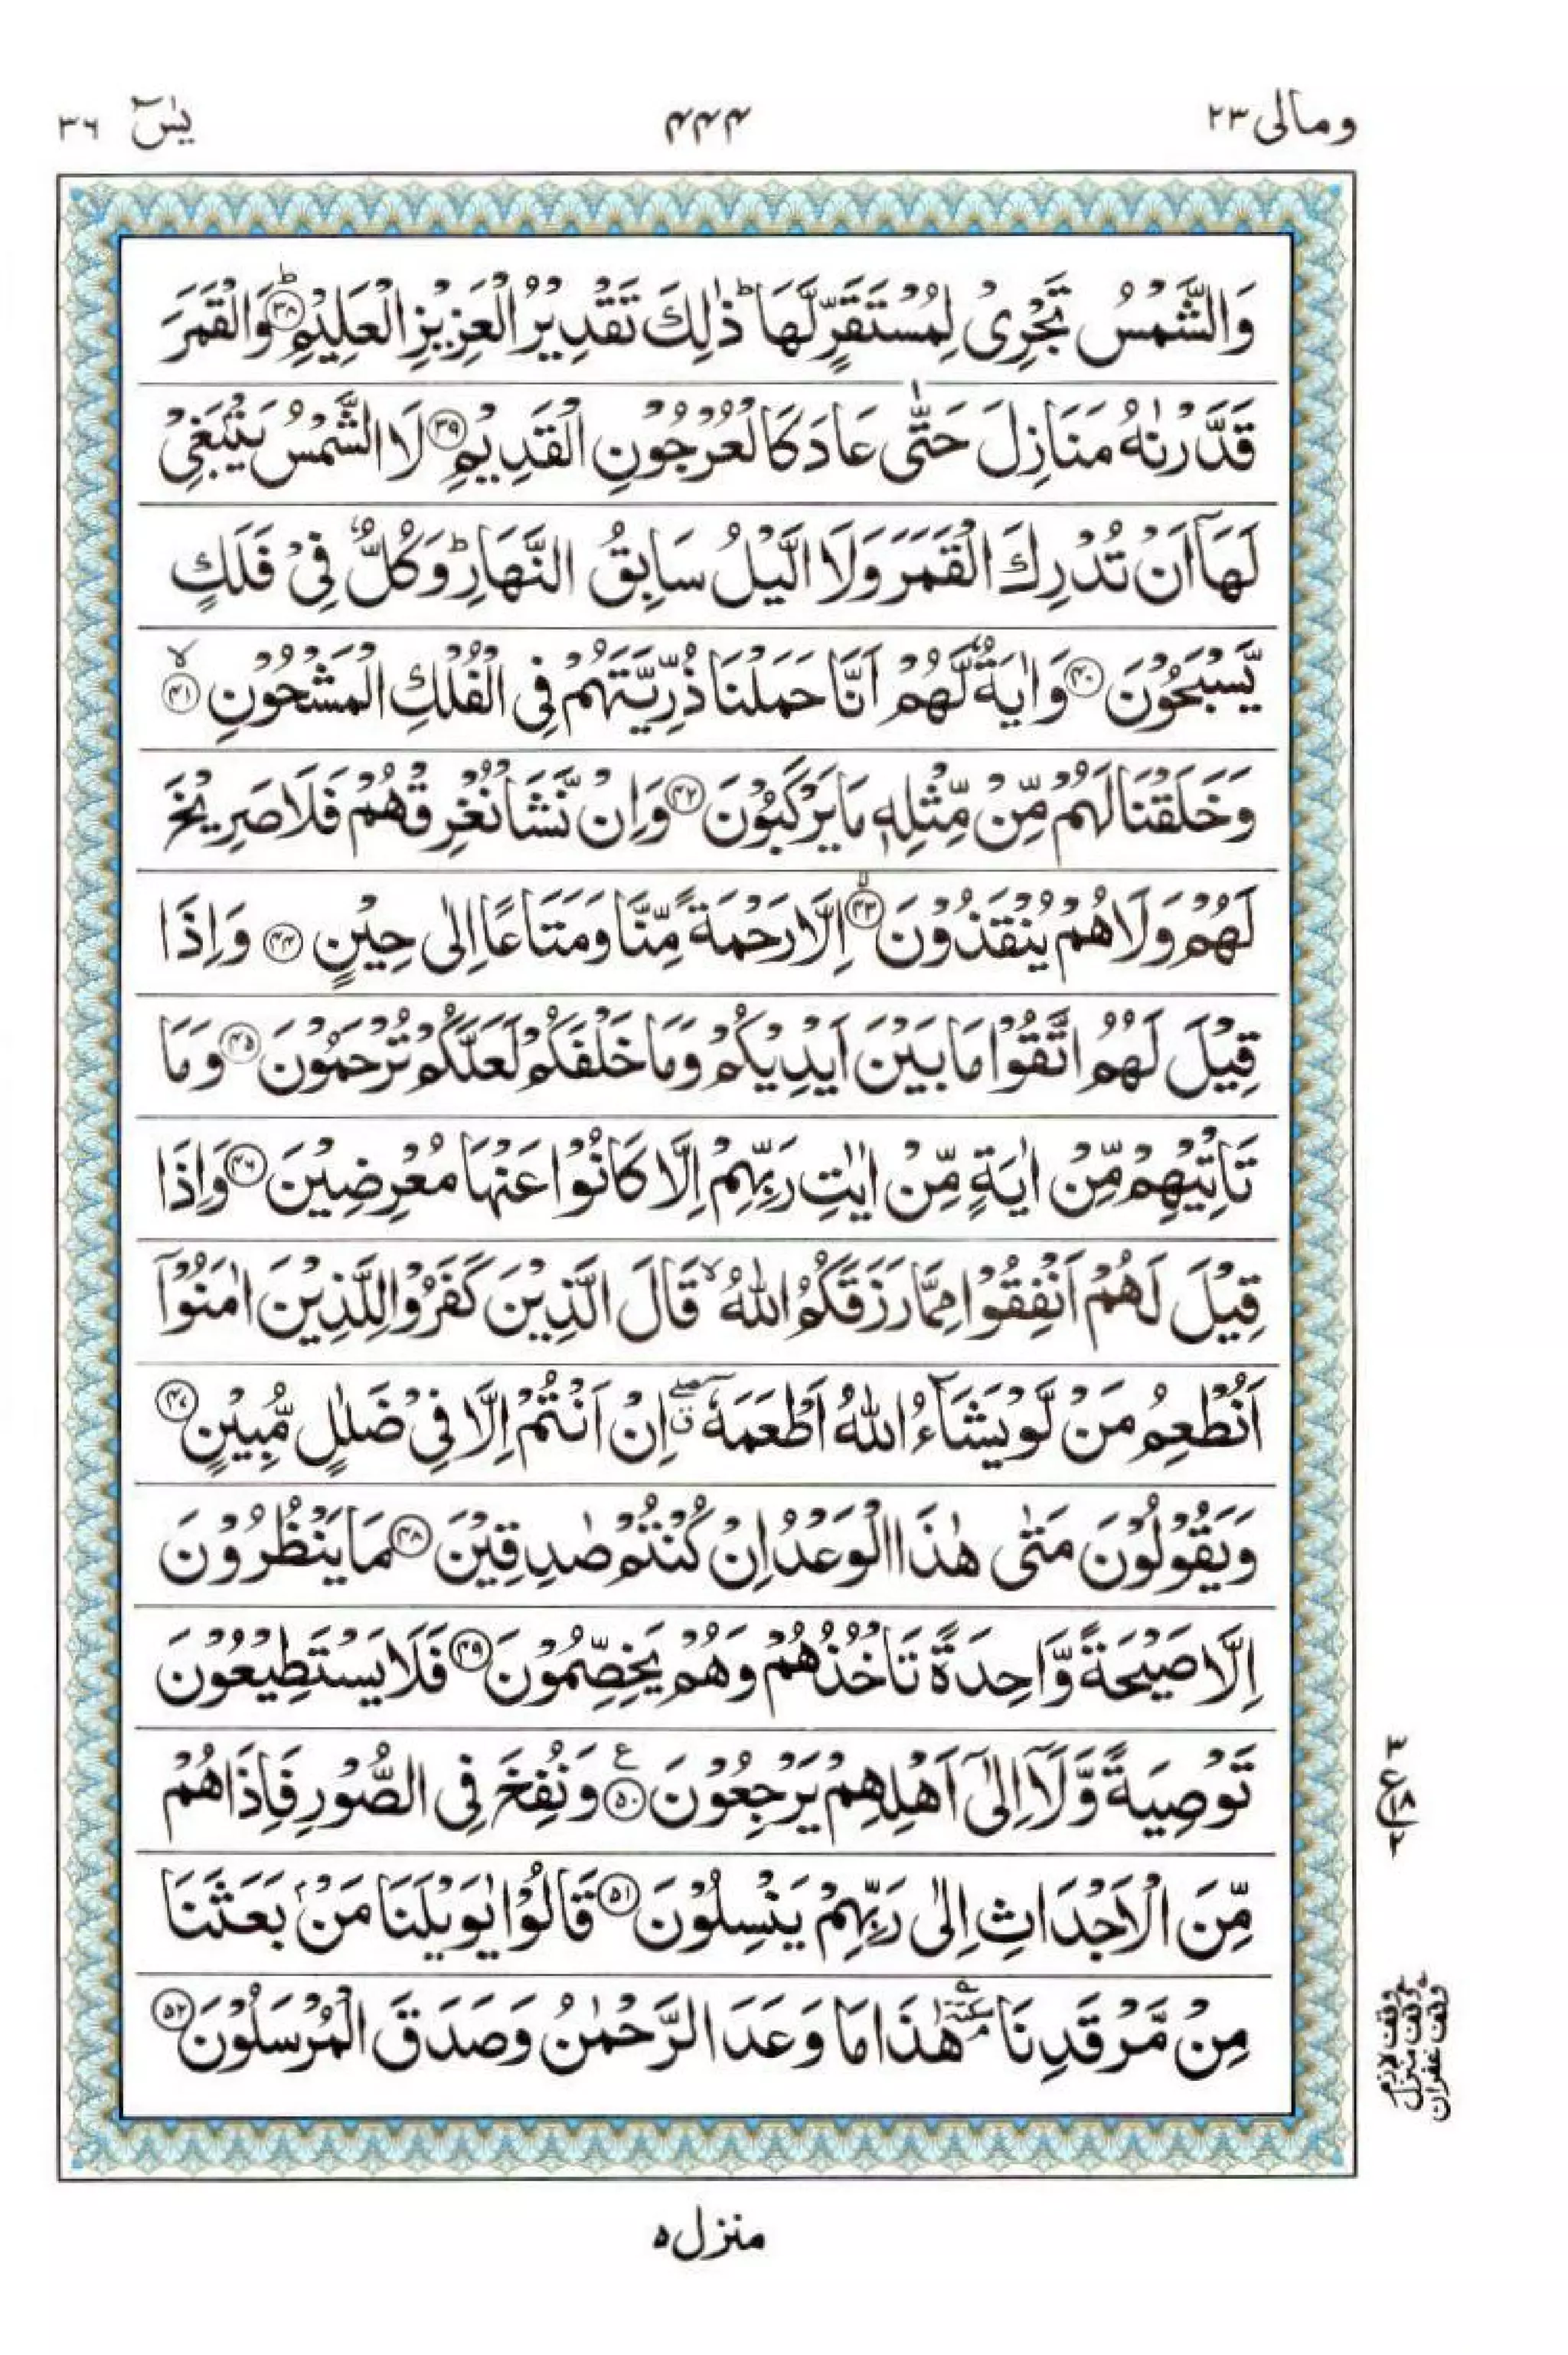 ومالی ۲۳
۴۴۴
یٰسٓ ۳۶
وَالشَّمْسُ تَجْرِیْ لِمُسْتَقَرٍّ لَّهَا ؕ ذٰلِكَ تَقْدِیْرُ الْعَزِیْزِ الْعَلِیْمِ ؕ﴿۳۸﴾ وَالْقَمَرَ
قَدَّرْنٰهُ مَنَازِلَ حَتّٰی عَادَ كَالْعُرْجُوْنِ الْقَدِیْمِ ﴿۳۹﴾ لَا الشَّمْسُ یَنْۢبَغِیْ
لَهَاۤ اَنْ تُدْرِكَ الْقَمَرَ وَلَا الَّیْلُ سَابِقُ النَّهَارِ ؕ وَكُلٌّ فِیْ فَلَكٍ
یَّسْبَحُوْنَ ﴿۴۰﴾ وَاٰیَةٌ لَّهُمْ اَنَّا حَمَلْنَا ذُرِّیَّتَهُمْ فِی الْفُلْكِ الْمَشْحُوْنِ ۙ﴿۴۱﴾
وَخَلَقْنَا لَهُمْ مِّنْ مِّثْلِهٖ مَا یَرْكَبُوْنَ ﴿۴۲﴾ وَاِنْ نَّشَاْ نُغْرِقْهُمْ فَلَا صَرِیْخَ
لَهُمْ وَلَا هُمْ یُنْقَذُوْنَ ۙ﴿۴۳﴾ اِلَّا رَحْمَةً مِّنَّا وَمَتَاعًا اِلٰی حِیْنٍ ﴿۴۴﴾ وَاِذَا
قِیْلَ لَهُمُ اتَّقُوْا مَا بَیْنَ اَیْدِیْكُمْ وَمَا خَلْفَكُمْ لَعَلَّكُمْ تُرْحَمُوْنَ ﴿۴۵﴾ وَمَا
تَاْتِیْهِمْ مِّنْ اٰیَةٍ مِّنْ اٰیٰتِ رَبِّهِمْ اِلَّا كَانُوْا عَنْهَا مُعْرِضِیْنَ ﴿۴۶﴾ وَاِذَا
قِیْلَ لَهُمْ اَنْفِقُوْا مِمَّا رَزَقَكُمُ اللّٰهُ ۙ قَالَ الَّذِیْنَ كَفَرُوْا لِلَّذِیْنَ اٰمَنُوْۤا
اَنُطْعِمُ مَنْ لَّوْ یَشَآءُ اللّٰهُ اَطْعَمَهٗۤ ۖق اِنْ اَنْتُمْ اِلَّا فِیْ ضَلٰلٍ مُّبِیْنٍ ﴿۴۷﴾
وَیَقُوْلُوْنَ مَتٰی هٰذَا الْوَعْدُ اِنْ كُنْتُمْ صٰدِقِیْنَ ﴿۴۸﴾ مَا یَنْظُرُوْنَ
اِلَّا صَیْحَةً وَّاحِدَةً تَاْخُذُهُمْ وَهُمْ یَخِصِّمُوْنَ ﴿۴۹﴾ فَلَا یَسْتَطِیْعُوْنَ
تَوْصِیَةً وَّلَاۤ اِلٰۤی اَهْلِهِمْ یَرْجِعُوْنَ ﴿۵۰﴾ ع وَنُفِخَ فِی الصُّوْرِ فَاِذَا هُمْ
۳ ع ۱۸ ۲
مِّنَ الْاَجْدَاثِ اِلٰی رَبِّهِمْ یَنْسِلُوْنَ ﴿۵۱﴾ قَالُوْا یٰوَیْلَنَا مَنْۢ بَعَثَنَا
مِنْ مَّرْقَدِنَا ۘ سكتة هٰذَا مَا وَعَدَ الرَّحْمٰنُ وَصَدَقَ الْمُرْسَلُوْنَ ﴿۵۲﴾
وقف لازم
وقف منزل
وقف غفران
منزل ۵